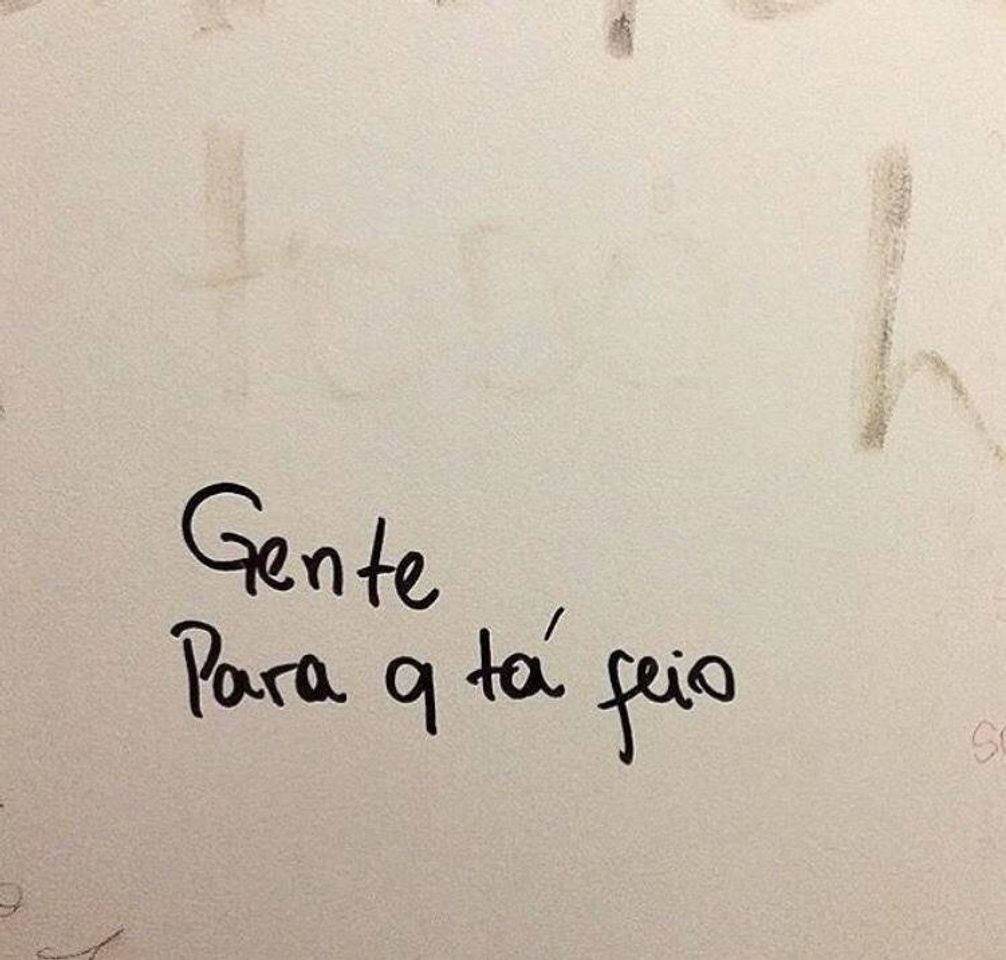 Gente
Para q tá feio